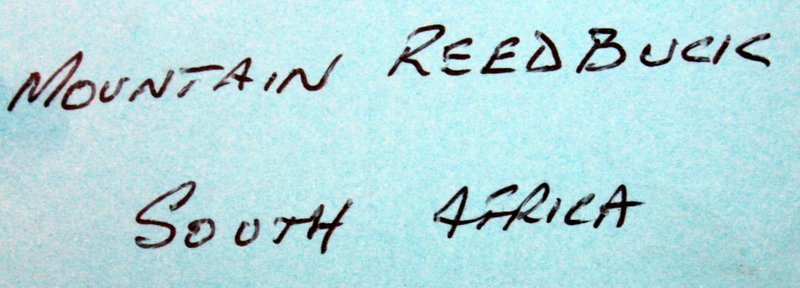 MOUNTAIN REEDBUCK
SOUTH AFRICA